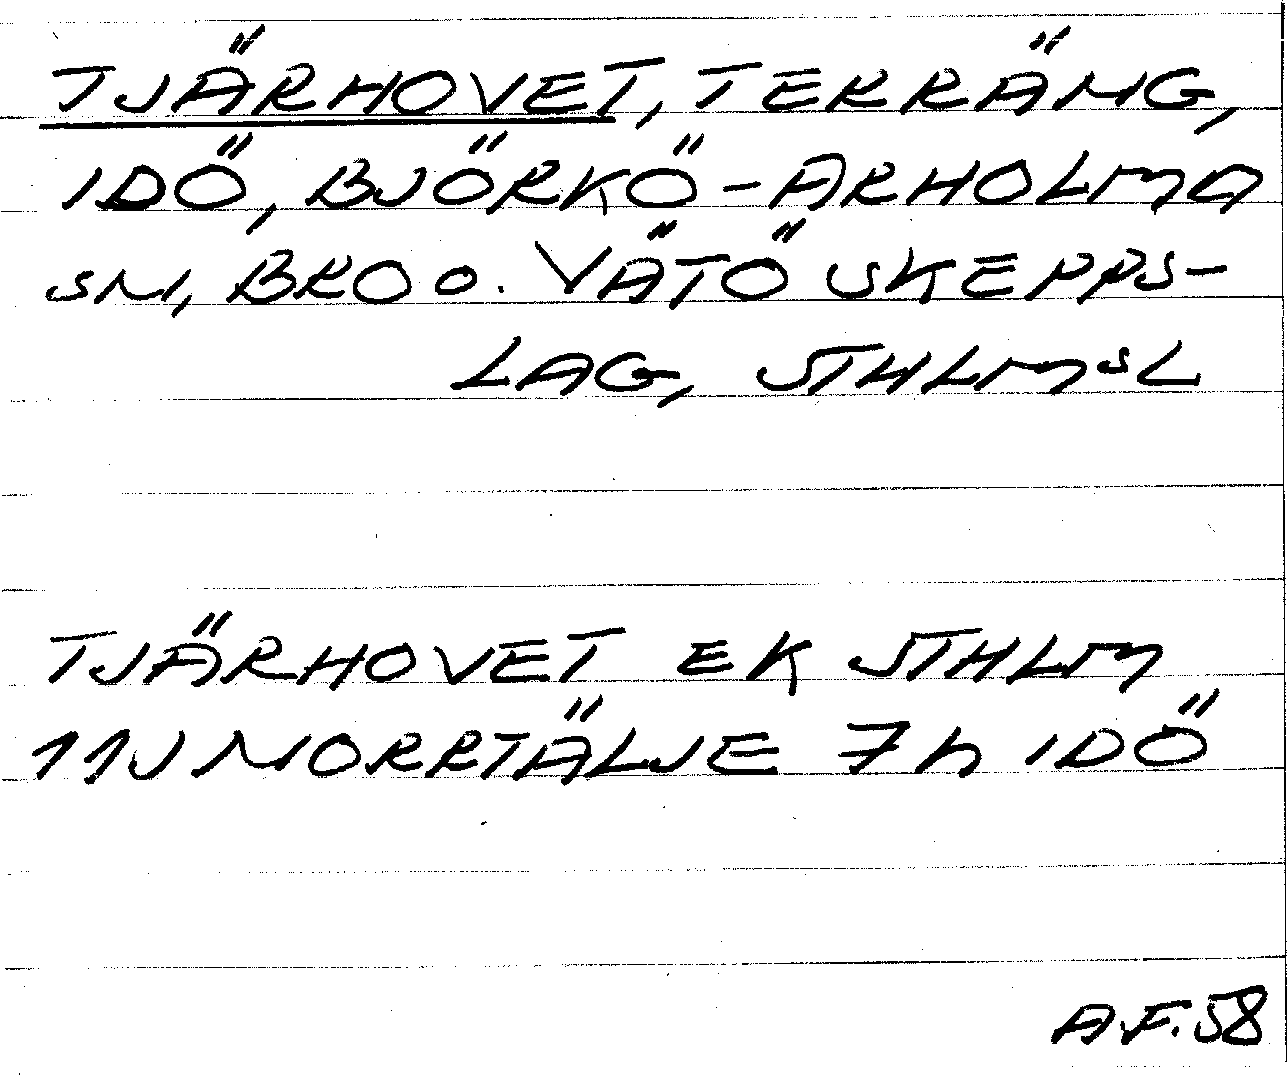 TJÄRHOVET, TERRÄNG,
IDÖ, BJÖRKÖ-ARHOLMA
SN, BRO O. VÄTÖ SKEPPS-
LAG, STHLMSL
TJÄRHOVET EK STHLM
11J NORRTÄLJE 7h IDÖ
A.F.58